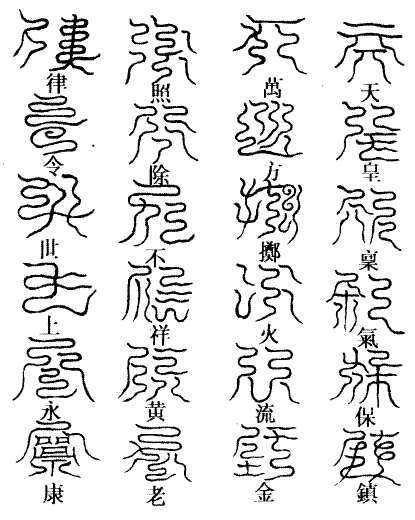 天皇稟氣保鎮
萬方擲火流金
照除不祥黄老
律令世上永康